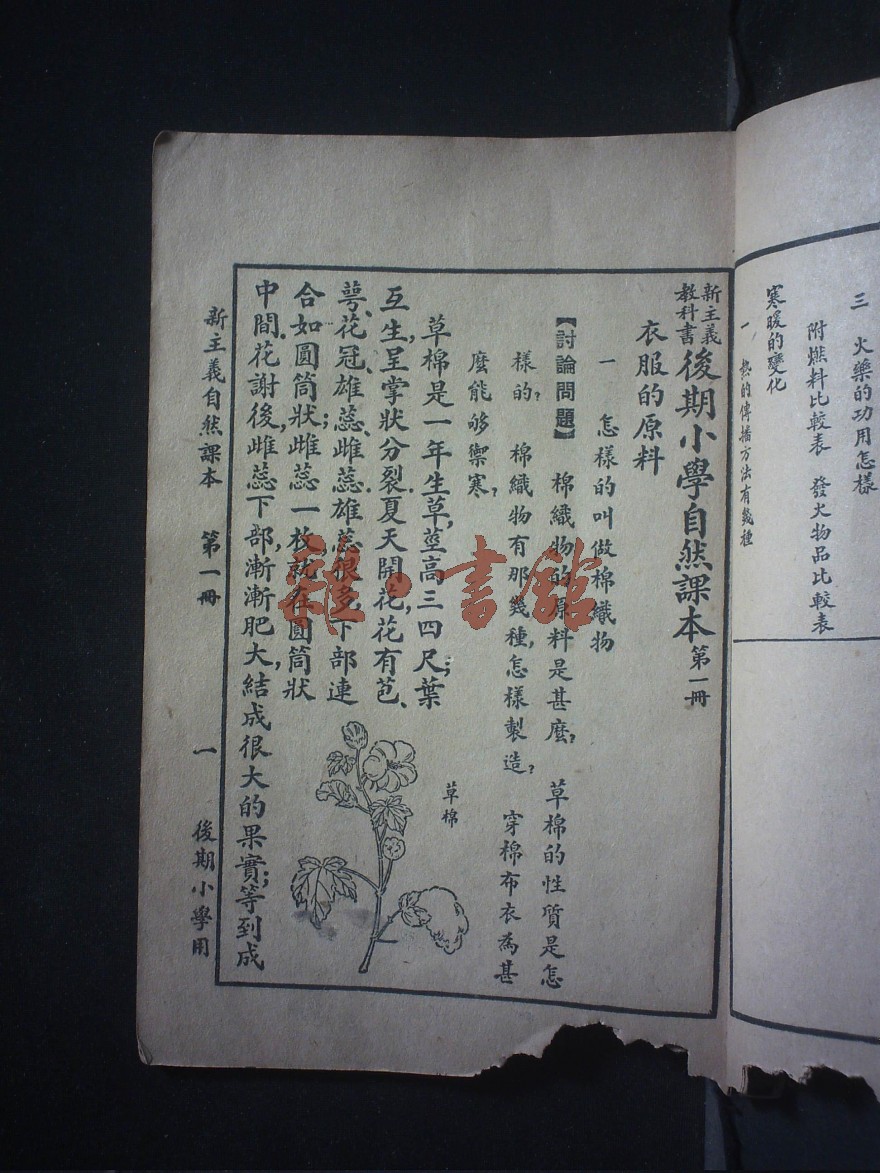 三　火藥的功用怎樣
附燃料比較表　發火物品比較表
寒暖的變化
一　熱的傳播方法有幾種
新主義教科書後期小學自然課本第一冊
衣服的原料
一　怎樣的叫做棉織物
【討論問題】　棉織物的原料是甚麼？　草棉的性質是怎
樣的？　棉織物有那幾種，怎樣製造？　穿棉布衣為甚
麼能够禦寒？
草棉是一年生草，莖高三四尺；葉
互生，呈掌狀分裂．夏天開花，花有苞、
萼、花冠、雄蕊、雌蕊．雄蕊很多，下部連
合如圓筒狀；雌蕊一枚，就在圓筒狀
中間．花謝後，雌蕊下部，漸漸肥大，結成很大的果實；等到成
草棉
新主義自然課本　第一冊　一　後期小學用
書館